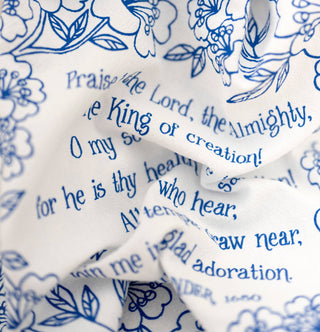 Praise the Lord, the Almighty,
the King of creation!
O my so
for he is thy health on!
All who hear,
draw near,
join me in glad adoration.
NDER, 1680